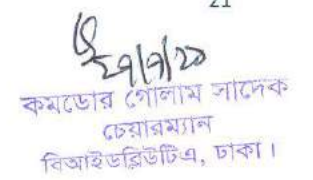 21
২৭/৭/২০
কমডোর গোলাম সাদেক
চেয়ারম্যান
বিআইডব্লিউটিএ, ঢাকা।